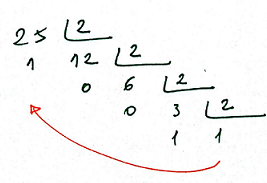 25 2
1 12 2
0 6 2
0 3 2
1 1